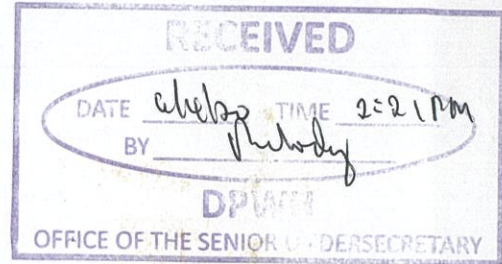 RECEIVED
DATE TIME 2:21 PM
BY Melody
DPWH
OFFICE OF THE SENIOR UNDERSECRETARY